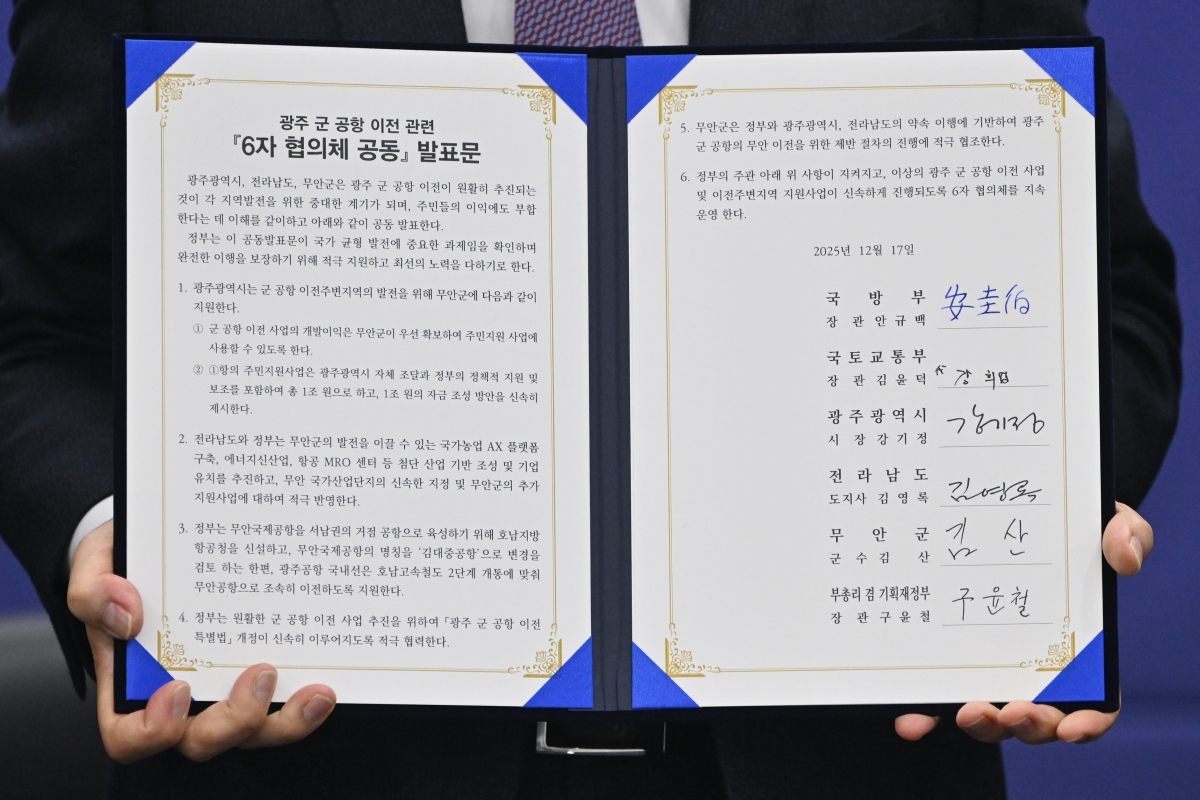 광주 군 공항 이전 관련
『6자 협의체 공동』 발표문
광주광역시, 전라남도, 무안군은 광주 군 공항 이전이 원활히 추진되는
것이 각 지역발전을 위한 중대한 계기가 되며, 주민들의 이익에도 부합
한다는 데 이해를 같이하고 아래와 같이 공동 발표한다.
정부는 이 공동발표문이 국가 균형 발전에 중요한 과제임을 확인하며
완전한 이행을 보장하기 위해 적극 지원하고 최선의 노력을 다하기로 한다.
1. 광주광역시는 군 공항 이전주변지역의 발전을 위해 무안군에 다음과 같이
지원한다.
① 군 공항 이전 사업의 개발이익은 무안군이 우선 확보하여 주민지원 사업에
사용할 수 있도록 한다.
② ①항의 주민지원사업은 광주광역시 자체 조달과 정부의 정책적 지원 및
보조를 포함하여 총 1조 원으로 하고, 1조 원의 자금 조성 방안을 신속히
제시한다.
2. 전라남도와 정부는 무안군의 발전을 이끌 수 있는 국가농업 AX 플랫폼
구축, 에너지신산업, 항공 MRO 센터 등 첨단 산업 기반 조성 및 기업
유치를 추진하고, 무안 국가산업단지의 신속한 지정 및 무안군의 추가
지원사업에 대하여 적극 반영한다.
3. 정부는 무안국제공항을 서남권의 거점 공항으로 육성하기 위해 호남지방
항공청을 신설하고, 무안국제공항의 명칭을 '김대중공항'으로 변경을
검토 하는 한편, 광주공항 국내선은 호남고속철도 2단계 개통에 맞춰
무안공항으로 조속히 이전하도록 지원한다.
4. 정부는 원활한 군 공항 이전 사업 추진을 위하여 「광주 군 공항 이전
특별법」 개정이 신속히 이루어지도록 적극 협력한다.
5. 무안군은 정부와 광주광역시, 전라남도의 약속 이행에 기반하여 광주
군 공항의 무안 이전을 위한 제반 절차의 진행에 적극 협조한다.
6. 정부의 주관 아래 위 사항이 지켜지고, 이상의 광주 군 공항 이전 사업
및 이전주변지역 지원사업이 신속하게 진행되도록 6자 협의체를 지속
운영 한다.
2025년 12월 17일
국 방 부
장 관 안 규 백 安圭伯
국토교통부
장 관 김 윤 덕 강희업
광주광역시
시 장 강 기 정 강기정
전 라 남 도
도지사 김 영 록 김영록
무 안 군
군 수 김 산 김 산
부총리 겸 기획재정부
장 관 구 윤 철 구윤철